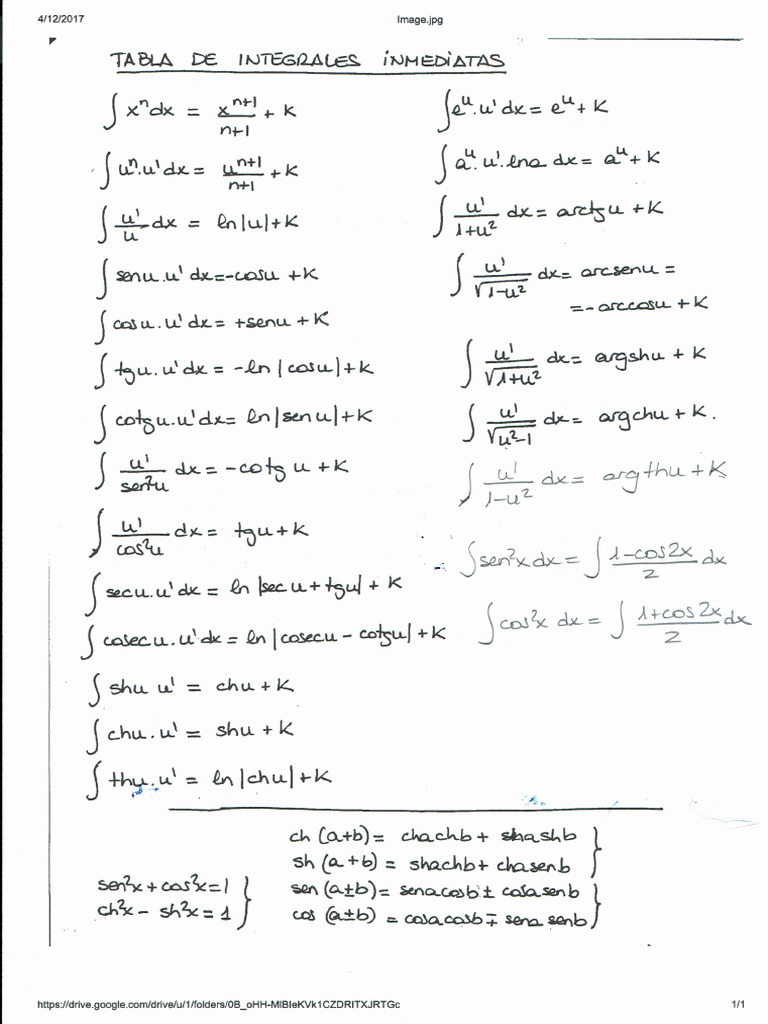 4/12/2017 Image.jpg
TABLA DE INTEGRALES INMEDIATAS
∫ xⁿ dx = xⁿ⁺¹/(n+1) + K
∫ uⁿ·u' dx = uⁿ⁺¹/(n+1) + K
∫ u'/u dx = ln|u| + K
∫ senu·u' dx = -cosu + K
∫ cosu·u' dx = +senu + K
∫ tgu·u' dx = -ln|cosu| + K
∫ cotgu·u' dx = ln|senu| + K
∫ u'/sen²u dx = -cotg u + K
∫ u'/cos²u dx = tgu + K
∫ secu·u' dx = ln|secu + tgu| + K
∫ cosecu·u' dx = ln|cosecu - cotgu| + K
∫ shu u' = chu + K
∫ chu·u' = shu + K
∫ thu·u' = ln|chu| + K
∫ eᵘ·u' dx = eᵘ + K
∫ aᵘ·u'·lna dx = aᵘ + K
∫ u'/(1+u²) dx = arctgu + K
∫ u'/√(1-u²) dx = arcsenu =
= -arccosu + K
∫ u'/√(1+u²) dx = argshu + K
∫ u'/√(u²-1) dx = argchu + K.
∫ u'/(1-u²) dx = argthu + K
∫ sen²x dx = ∫ (1-cos2x)/2 dx
∫ cos²x dx = ∫ (1+cos2x)/2 dx
ch (a+b) = chachb + shashb
sh (a+b) = shachb + chasenb
sen²x + cos²x = 1
ch²x - sh²x = 1
sen (a±b) = senacosb ± cosasenb
cos (a±b) = cosacosb ∓ senasenb
https://drive.google.com/drive/u/1/folders/0B_oHH-MlBIeKVk1CZDRITXJRTGc 1/1